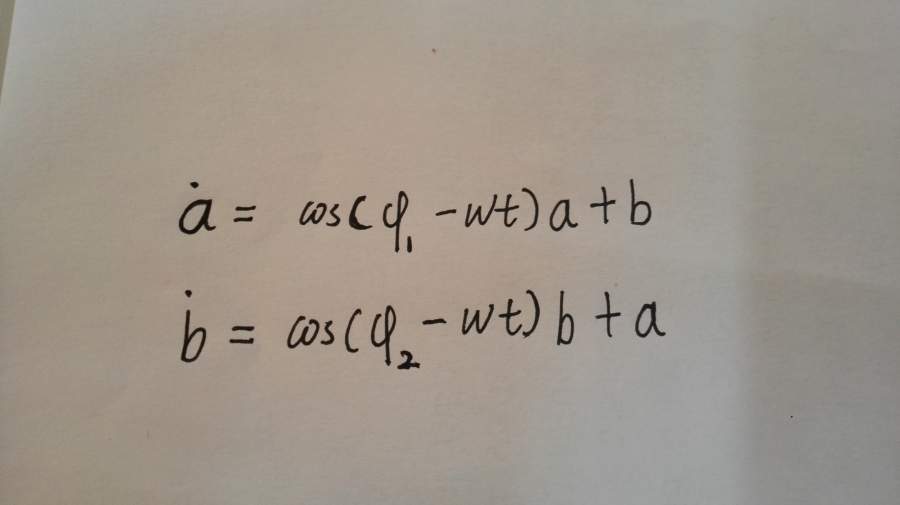 ȧ = cos(φ₁ - wt)a + b
ḃ = cos(φ₂ - wt)b + a